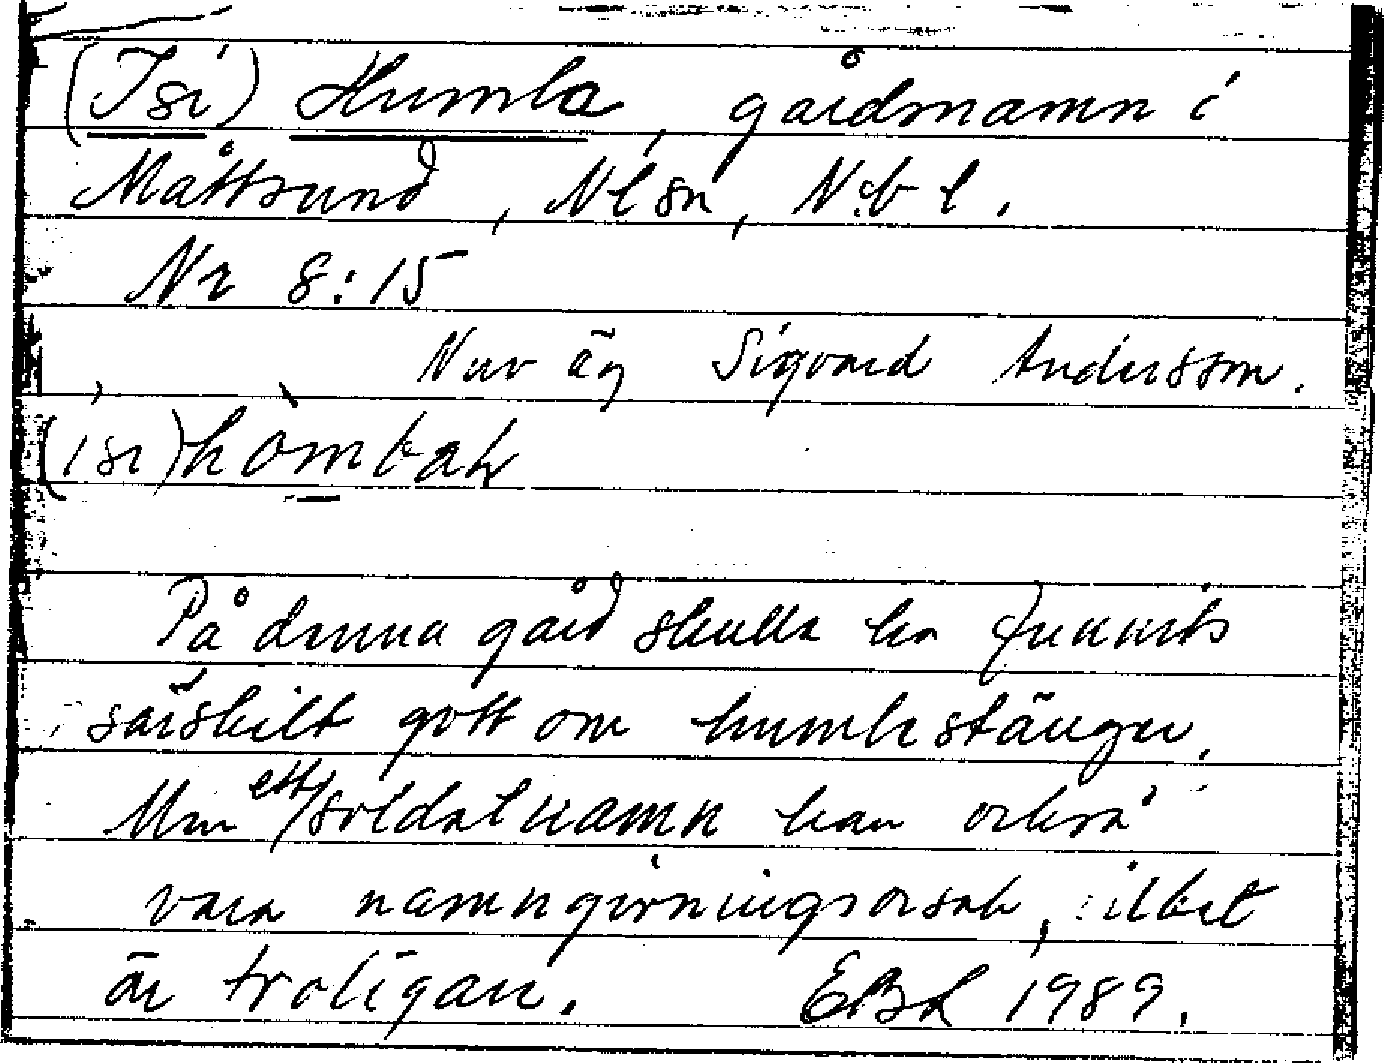 (Isi) Humla, gårdsnamn i
Måttsund, Nl sn, Nb l.
Nr 8:15
Nuv äg Sigvard Andersson.
(isi)
På denna gård skulle ha funnits
särskilt gott om humlestänger.
Men ett soldatnamn kan också
vara namngivningsorsak, vilket
är troligare. EBL 1989.